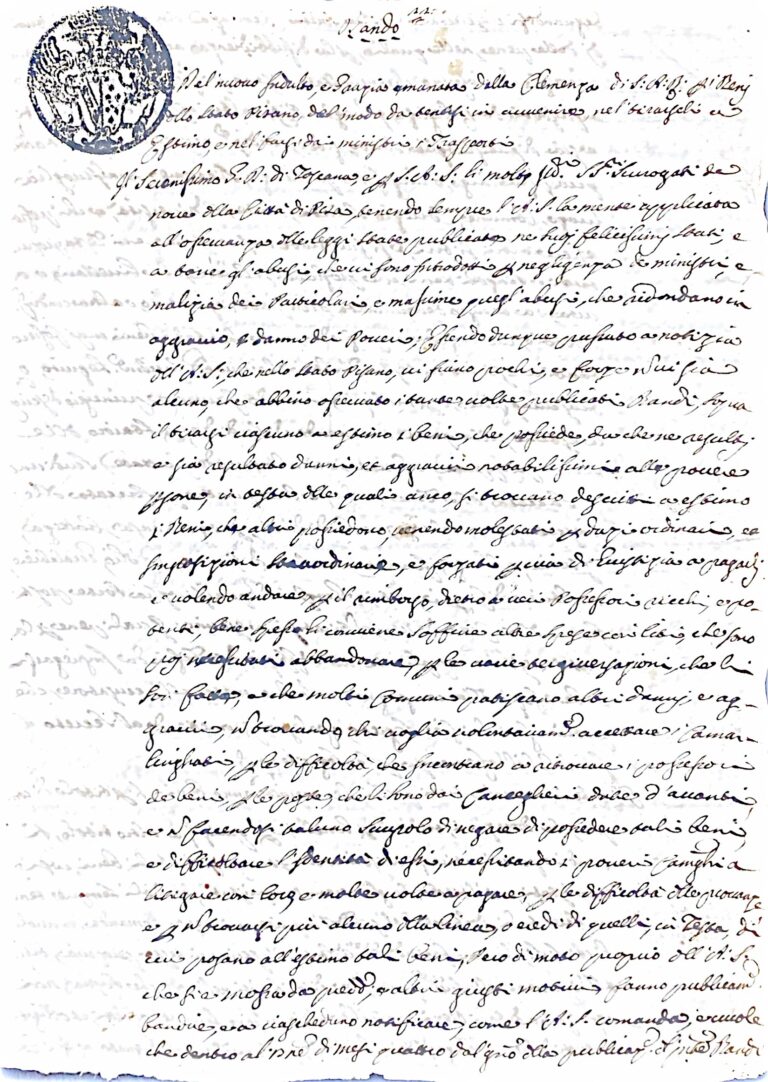 Bando
Nel nuovo Indulto, e Grazia emanata dalla Clemenza di S. A. R. p i Beni
dello Stato Pisano, del modo da tenersi in avvenire nel tirarseli a
Estimo e nel farsi dai ministri i Trasporti
Il Serenissimo G. D. di Toscana, e p S. A. S. li molto Surrogati de
nove della Città di Pisa, tenendo sempre l'A. S. la mente applicata
all'osservanza delle leggi state publicate ne suoi felicissimi stati, e
a torre gl'abusi, che vi sono introdotti p negligenza de ministri, e
malizia dei Particolari, e massime quegl'abusi, che ridondano in
aggravio, e danno dei Poveri; Essendo dunque pervenuto a notizia
dell'A. S., che nello stato Pisano, vi siino pochi, e forse n vi sia
alcuno, che abbino osservato i tante volte publicati Bandi, sopra
il tirarsi ciascuno a estimo i beni, che possiede, da che ne resulti,
e sia resultato danni, et aggravii notabilissimi alle povere
psone, in testa delle quali anco, si trovano descritti a estimo
i Beni, che altri possiedono, venendo molestati p dazi ordinari, et
imposizioni straordinarie, e forzati p via di Giustizia a pagarli,
e volendo andare p il rimborso, dietro a veri Possessori ricchi, e po-
tenti, bene spesso li conviene soffrire altre spese con liti, che sono
poi necessitati abbandonare, p le varie tergiversazioni, che li
son fatte, e che molti Comuni patiscano altri danni, e ag-
gravii, n trovando, chi voglia volontariam.e accettare i Camar-
linghati, p le difficoltà, che incontrano a ritrovare i possessori
de beni, p le poste, che li sono dai Cancellieri date d'avanti,
e n facendosi taluno scrupolo di negare di possedere tali beni,
e difficoltare l'Identità di essi, necessitando i poveri Camghi a
litigare con loro, e molte volte a pagare, p le difficoltà delle pruove
e p n trovarsi più alcuno della linea, o eredi di quelli, in Testa, di
cui posano all'estimo tali beni, Però di moto proprio dell'A. S.
che si è mossa da pred.i, e altri giusti motivi, fanno publicam.e
bandire, e a ciascheduno notificare, come l'A. S. comanda, e vuole
che dentro al di mesi quattro dal della publicaz. Bandi